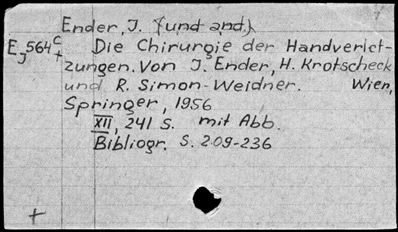 Ender, J. {und and.}
E, 564 C Die Chirurgie der Handverlet-
J + zungen. Von J. Ender, H. Krotscheck
und R. Simon-Weidner. Wien,
Springer, 1956
XII, 241 S. mit Abb.
Bibliogr. S. 209-236
+